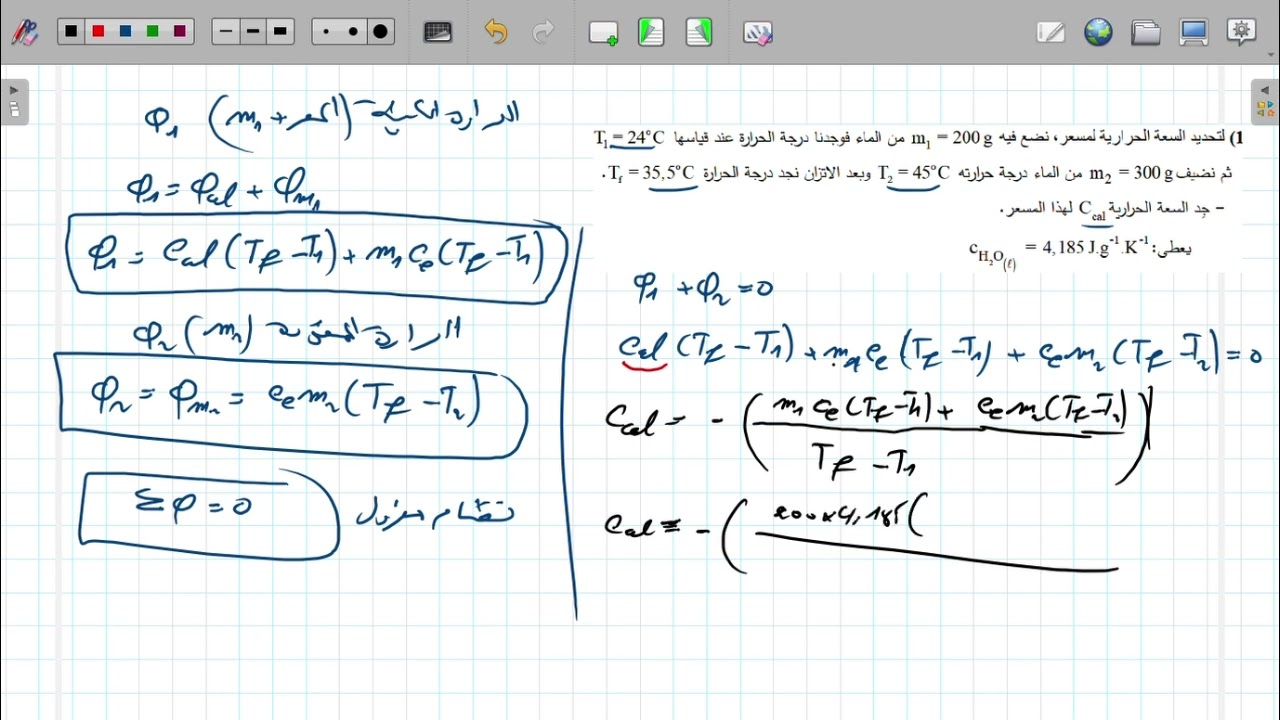 1) لتحديد السعة الحرارية لمسعر، نضع فيه m₁ = 200 g من الماء فوجدنا درجة الحرارة عند قياسها T₁ = 24°C
ثم نضيف m₂ = 300 g من الماء درجة حرارته T₂ = 45°C وبعد الاتزان نجد درجة الحرارة T_f = 35,5°C .
– جِد السعة الحرارية C_cal لهذا المسعر .
يعطى: c_H₂O(ℓ) = 4,185 J.g⁻¹.K⁻¹
φ₁ (m₁ +
φ₁ = φcal + φm₁
φ₁ = Ccal (Tf – T₁) + m₁ Ce (Tf – T₁)
φ₂ (m₂)
φ₂ = φm₂ = Ce m₂ (Tf – T₂)
Σφ = 0 نظام معزول
φ₁ + φ₂ = 0
Ccal (Tf – T₁) + m₁ Ce (Tf – T₁) + Ce m₂ (Tf – T₂) = 0
Ccal = – ( m₁ Ce (Tf – T₁) + Ce m₂ (Tf – T₂)
Tf – T₁ )
Ccal = – ( 200 x 4,185 (